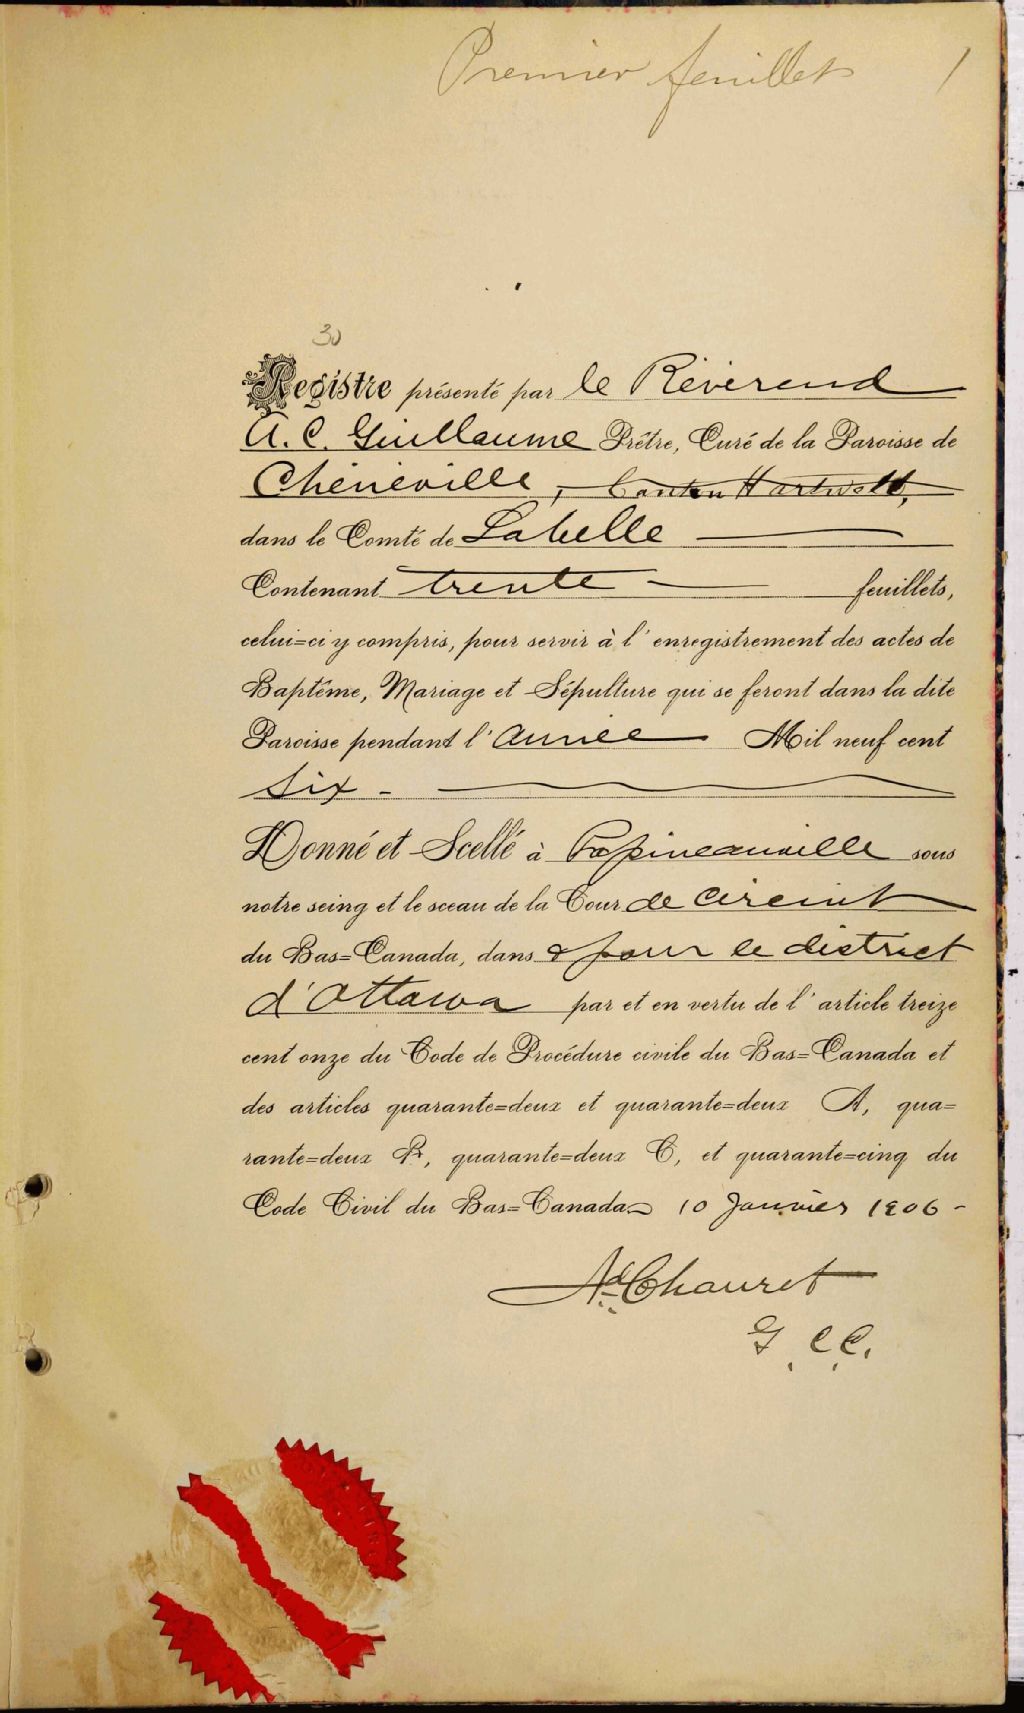 Premier feuillet 1
30
Registre présenté par le Révérend
A. C. Guillaume Prêtre, Curé de la Paroisse de
Chénéville, Canton Hartwell,
dans le Comté de Labelle
Contenant trente feuillets,
celui=ci y compris, pour servir à l'enregistrement des actes de
Baptême, Mariage et Sépulture qui se feront dans la dite
Paroisse pendant l'année Mil neuf cent
six -
Donné et Scellé à Papineauville sous
notre seing et le sceau de la Cour de circuit
du Bas=Canada, dans & pour le district
d'Ottawa par et en vertu de l'article treize
cent onze du Code de Procédure civile du Bas=Canada et
des articles quarante=deux et quarante=deux A, qua=
rante=deux B, quarante=deux C, et quarante=cinq du
Code Civil du Bas=Canada 10 Janvier 1906 -
Ad Chauret
G. C. C.